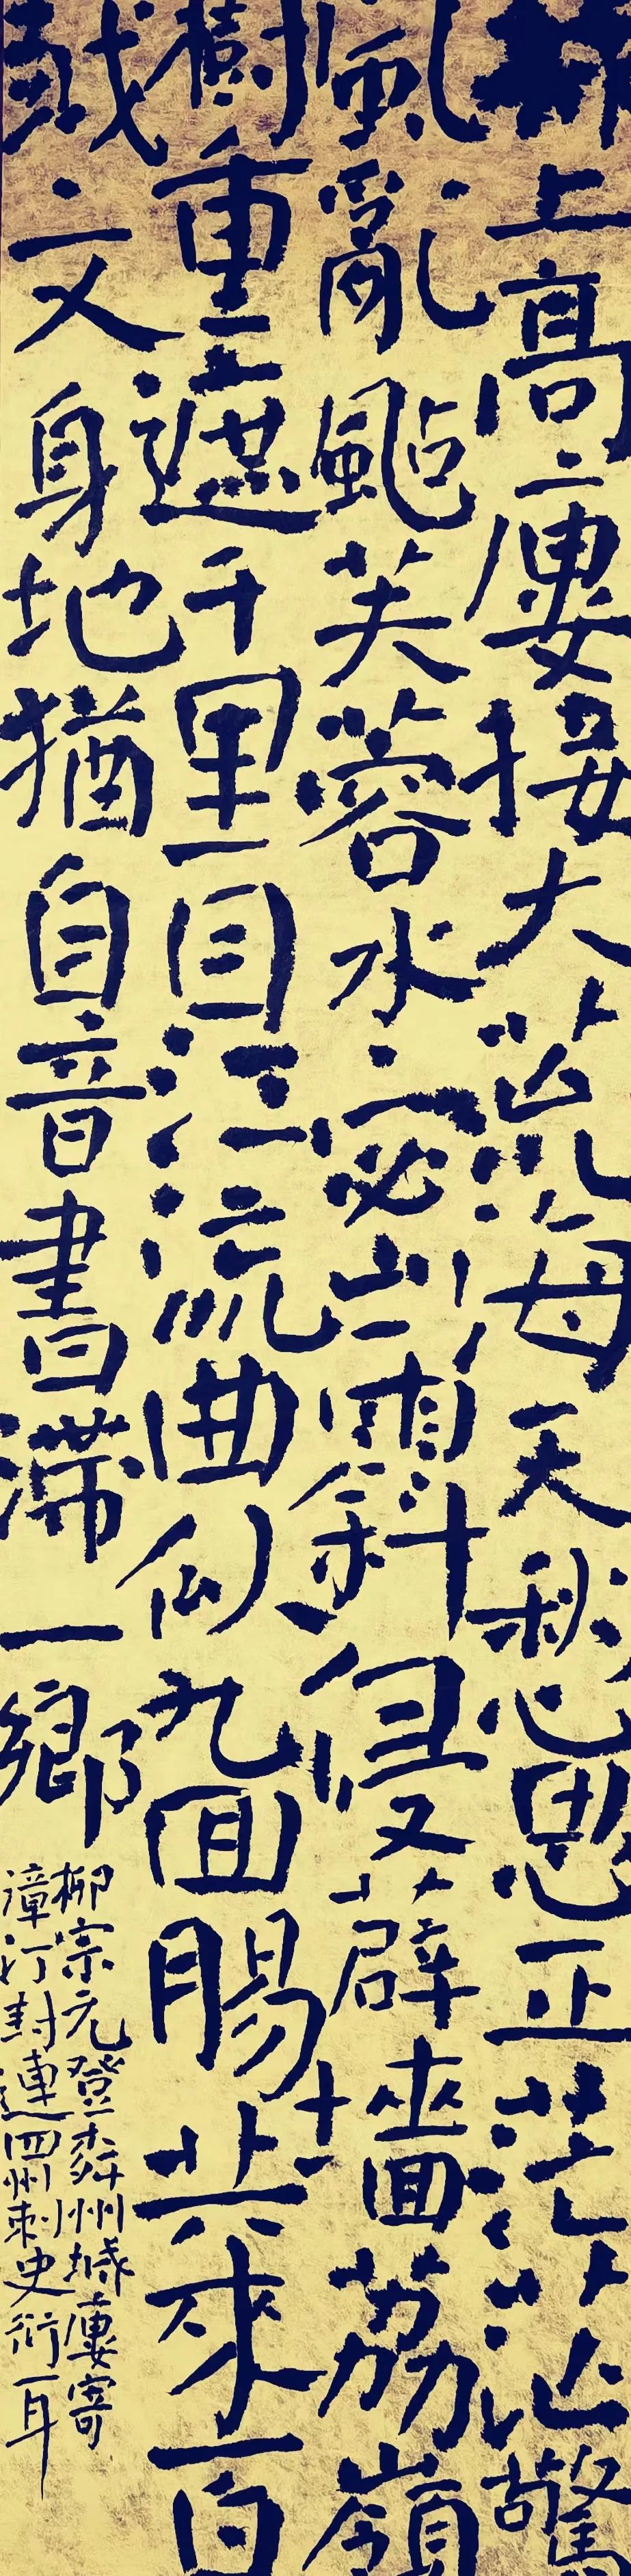 城上高廔接大荒海天愁思正茫茫驚
風亂颭芙蓉水密雨斜侵薜墻荔嶺
樹重遮千里目江流曲似九回腸共來百
越文身地猶自音書滯一鄉
柳宗元登柳州城廔寄
漳汀封連四州刺史衍一耳